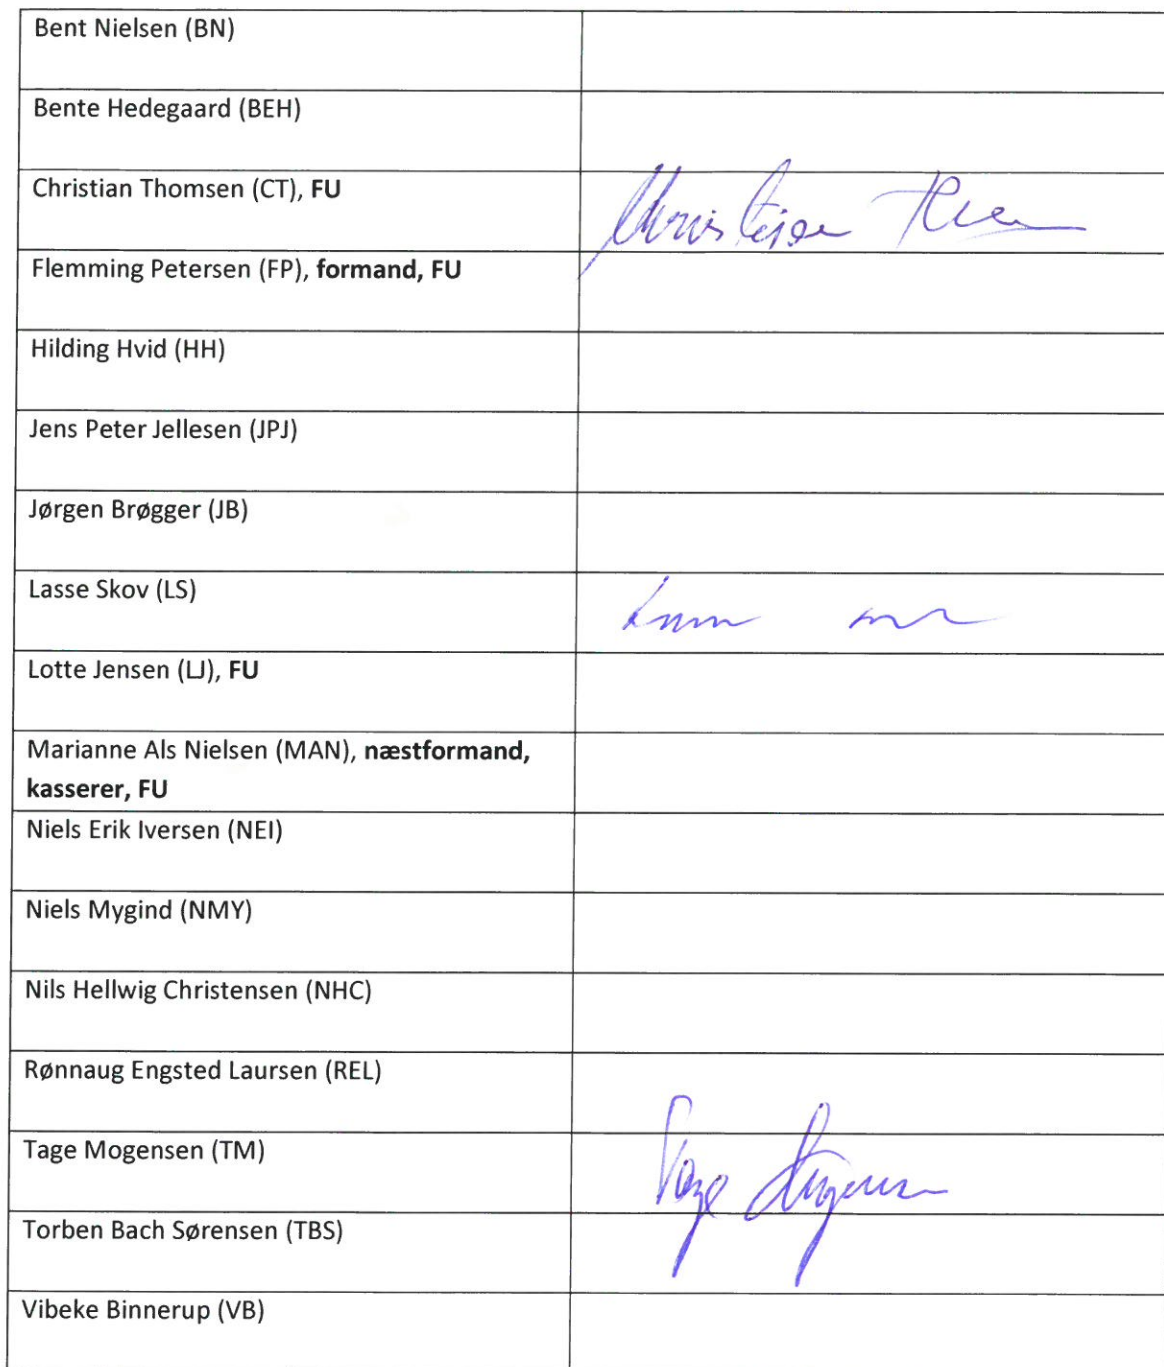 Bent Nielsen (BN)
Bente Hedegaard (BEH)
Christian Thomsen (CT), FU
Flemming Petersen (FP), formand, FU
Hilding Hvid (HH)
Jens Peter Jellesen (JPJ)
Jørgen Brøgger (JB)
Lasse Skov (LS)
Lotte Jensen (LJ), FU
Marianne Als Nielsen (MAN), næstformand,
kasserer, FU
Niels Erik Iversen (NEI)
Niels Mygind (NMY)
Nils Hellwig Christensen (NHC)
Rønnaug Engsted Laursen (REL)
Tage Mogensen (TM)
Torben Bach Sørensen (TBS)
Vibeke Binnerup (VB)